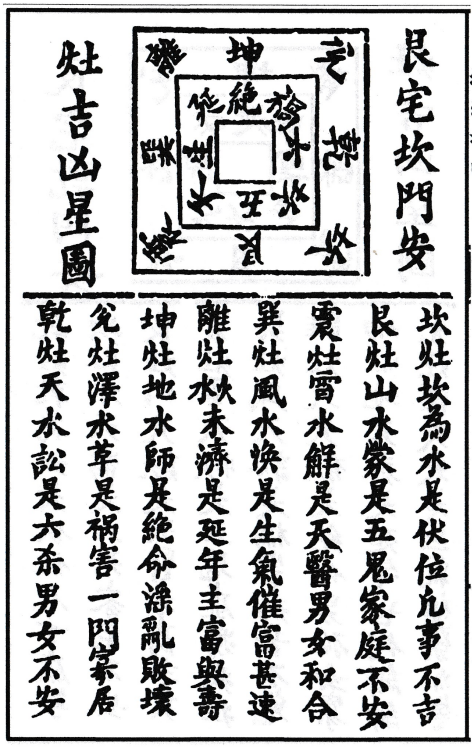 艮宅坎門安
離坤兌
延絕禍
巽生六乾
天五伏
震艮坎
灶吉凶星圖
坎灶坎為水是伏位凡事不吉
艮灶山水蒙是五鬼家庭不安
震灶雷水解是天醫男女和合
巽灶風水渙是生氣催富甚速
離灶火水未濟是延年主富與壽
坤灶地水師是絕命淫亂敗壞
兌灶澤水草是祸害一門寡居
乾灶天水訟是六杀男女不安